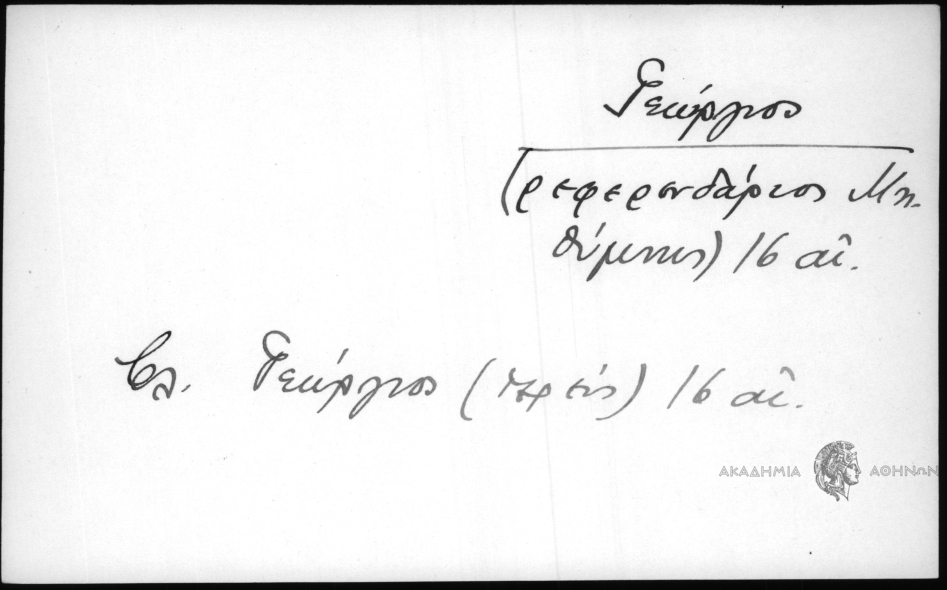 Γεώργιος
(ρεφερενδάριος Μη-
θύμνης) 16 αἰ.
Βλ. Γεώργιος (ἱερεύς) 16 αἰ.
ΑΚΑΔΗΜΙΑ ΑΘΗΝΩΝ